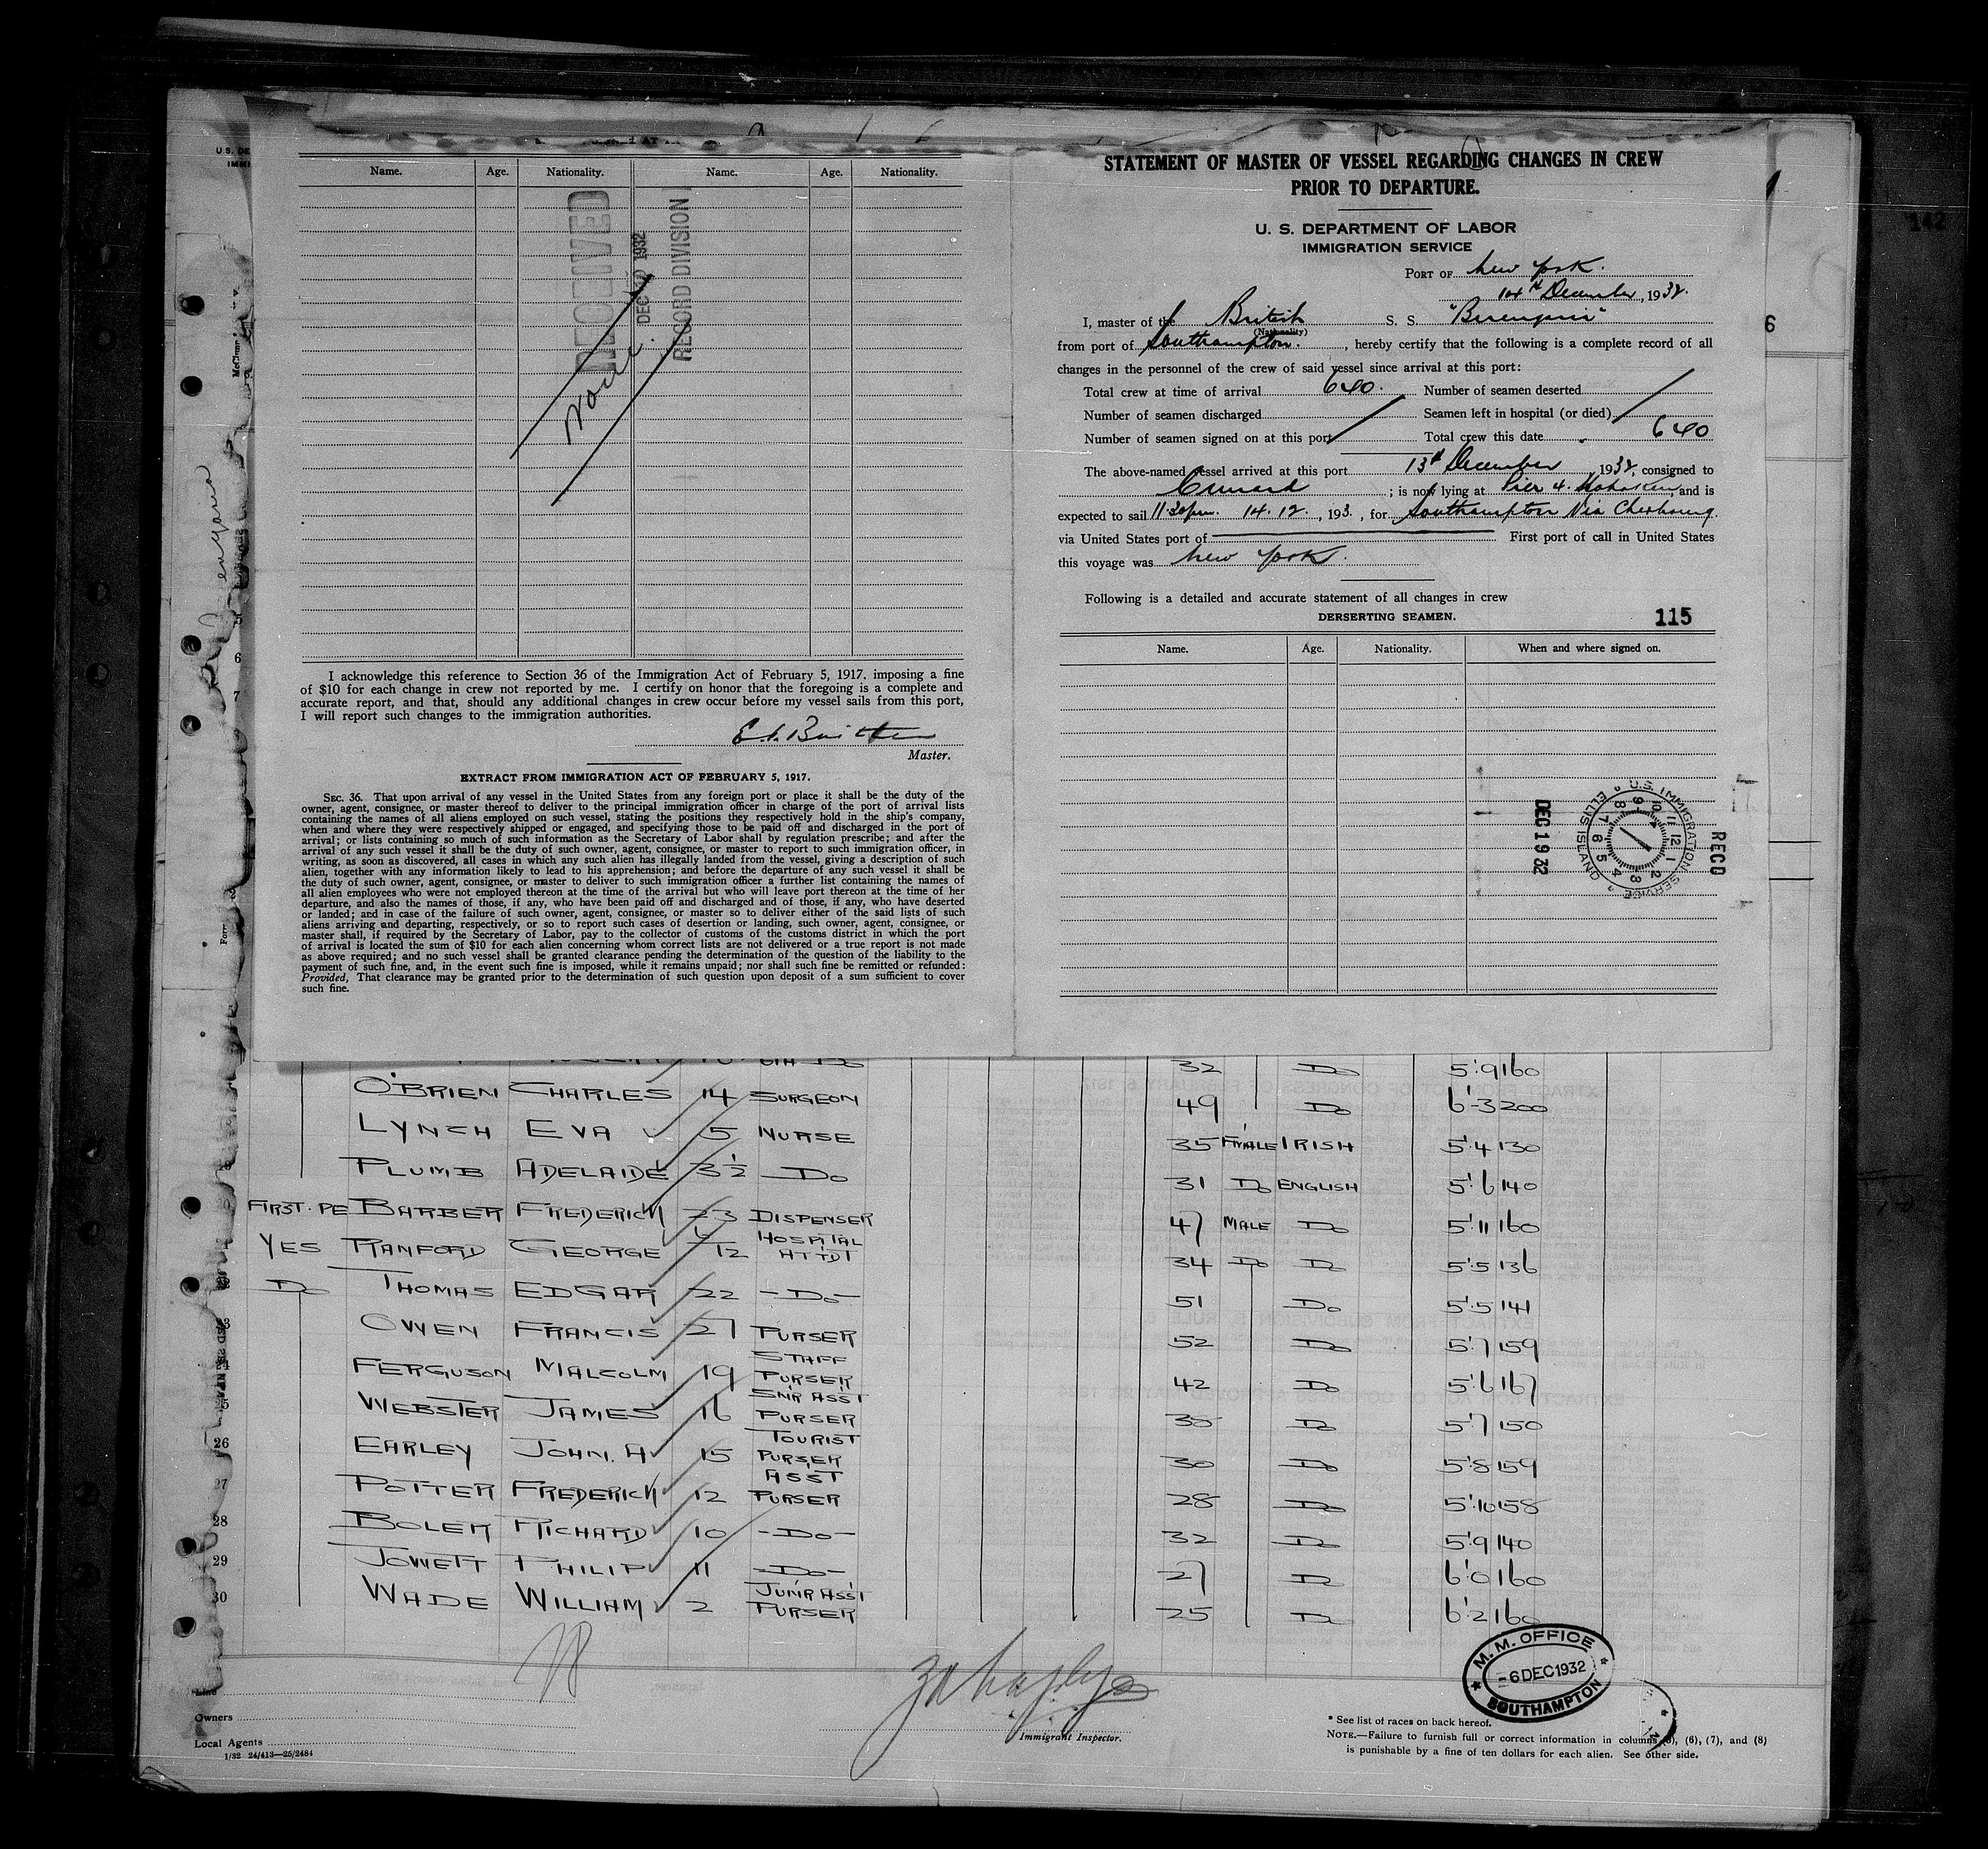 Name. Age. Nationality. Name. Age. Nationality.
RECEIVED
DEC 1932
RECORD DIVISION
None.
I acknowledge this reference to Section 36 of the Immigration Act of February 5, 1917, imposing a fine
of $10 for each change in crew not reported by me. I certify on honor that the foregoing is a complete and
accurate report, and that, should any additional changes in crew occur before my vessel sails from this port,
I will report such changes to the immigration authorities.
Master.
EXTRACT FROM IMMIGRATION ACT OF FEBRUARY 5, 1917.
SEC. 36. That upon arrival of any vessel in the United States from any foreign port or place it shall be the duty of the
owner, agent, consignee, or master thereof to deliver to the principal immigration officer in charge of the port of arrival lists
containing the names of all aliens employed on such vessel, stating the positions they respectively hold in the ship's company,
when and where they were respectively shipped or engaged, and specifying those to be paid off and discharged in the port of
arrival; or lists containing so much of such information as the Secretary of Labor shall by regulation prescribe; and after the
arrival of any such vessel it shall be the duty of such owner, agent, consignee, or master to report to such immigration officer, in
writing, as soon as discovered, all cases in which any such alien has illegally landed from the vessel, giving a description of such
alien, together with any information likely to lead to his apprehension; and before the departure of any such vessel it shall be
the duty of such owner, agent, consignee, or master to deliver to such immigration officer a further list containing the names of
all alien employees who were not employed thereon at the time of the arrival but who will leave port thereon at the time of her
departure, and also the names of those, if any, who have been paid off and discharged and of those, if any, who have deserted
or landed; and in case of the failure of such owner, agent, consignee, or master so to deliver either of the said lists of such
aliens arriving and departing, respectively, or so to report such cases of desertion or landing, such owner, agent, consignee, or
master shall, if required by the Secretary of Labor, pay to the collector of customs of the customs district in which the port
of arrival is located the sum of $10 for each alien concerning whom correct lists are not delivered or a true report is not made
as above required; and no such vessel shall be granted clearance pending the determination of the question of the liability to the
payment of such fine, and, in the event such fine is imposed, while it remains unpaid; nor shall such fine be remitted or refunded:
Provided, That clearance may be granted prior to the determination of such question upon deposit of a sum sufficient to cover
such fine.
STATEMENT OF MASTER OF VESSEL REGARDING CHANGES IN CREW
PRIOR TO DEPARTURE.
U. S. DEPARTMENT OF LABOR
IMMIGRATION SERVICE
PORT OF New York.
14th December, 1932.
I, master of the British S. S. "Berengaria"
(Nationality)
from port of Southampton., hereby certify that the following is a complete record of all
changes in the personnel of the crew of said vessel since arrival at this port:
Total crew at time of arrival 640. Number of seamen deserted
Number of seamen discharged Seamen left in hospital (or died)
Number of seamen signed on at this port Total crew this date 640
The above-named vessel arrived at this port 13th December, 1932, consigned to
Cunard; is now lying at Pier 4. Hoboken, and is
expected to sail 11.30pm. 14.12., 193 , for Southampton Via Cherbourg.
via United States port of First port of call in United States
this voyage was New York.
Following is a detailed and accurate statement of all changes in crew
DERSERTING SEAMEN.
115
Name. Age. Nationality. When and where signed on.
U.S. IMMIGRATION SERVICE ELLIS ISLAND
RECD
DEC 19 32
142
6
32 Do 5'.9 160
O'BRIEN CHARLES 14 SURGEON 49 Do 6'.3 200
LYNCH EVA 5 NURSE 35 FMALE IRISH 5'.4 130
PLUMB ADELAIDE 3½ Do 31 Do ENGLISH 5'.6 140
FIRST. PE BARBER FREDERICK 23 DISPENSER 47 MALE Do 5'.11 160
YES RANFORD GEORGE 4/12 HOSPITAL ATTDT 34 Do Do 5'.5 136
Do THOMAS EDGAR 22 -Do- 51 Do 5'.5 141
OWEN FRANCIS 27 PURSER 52 Do 5'.7 159
24 FERGUSON MALCOLM 19 STAFF PURSER 42 Do 5'.6 167
25 WEBSTER JAMES 16 SNR ASST PURSER 38 Do 5'.7 150
26 EARLEY JOHN. A 15 TOURIST PURSER 30 Do 5'.8 159
27 POTTER FREDERICK 12 ASST PURSER 28 Do 5'.10 158
28 BOLER RICHARD 10 -Do- 32 Do 5'.9 140
29 JOWETT PHILIP 11 -Do- 27 Do 6'.0 160
30 WADE WILLIAM 2 JUNR ASST PURSER 25 Do 6'.2 160
M.M. OFFICE
-6 DEC 1932
SOUTHAMPTON
Line
Owners
Local Agents
1/32 24/413—25/2484
Immigrant Inspector.
* See list of races on back hereof.
NOTE.—Failure to furnish full or correct information in columns (5), (6), (7), and (8)
is punishable by a fine of ten dollars for each alien. See other side.